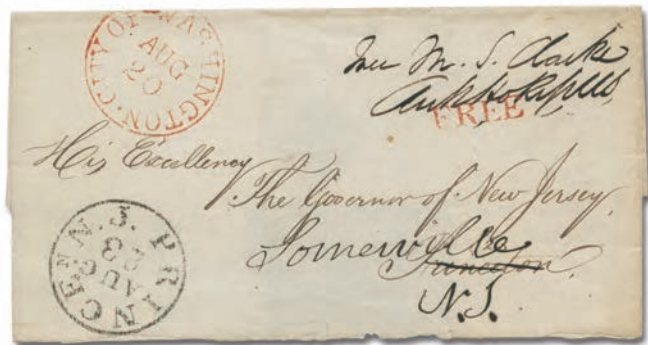 CITY OF WASHINGTON
AUG
20
M. S. Clarke
FREE
His Excellency
The Governor of New Jersey
Somerville
Princeton
N.J.
PRINCEN N.J.
AUG
23